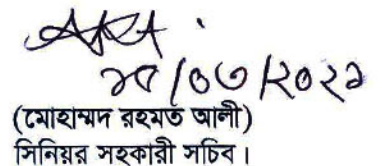 /০৩/২০২১
(মোহাম্মদ রহমত আলী)
সিনিয়র সহকারী সচিব।